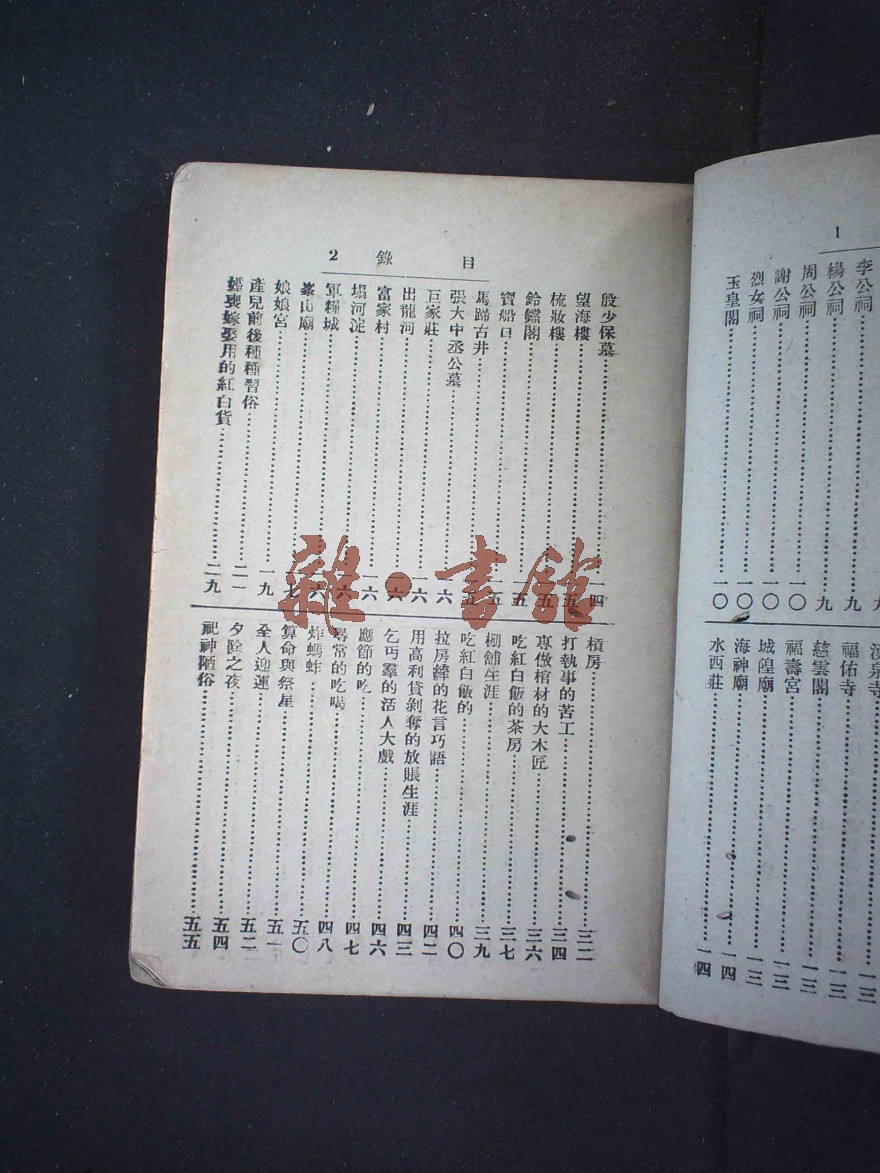 1
李公祠……九
楊公祠……九
周公祠……一〇
謝公祠……一〇
烈女祠……一〇
玉皇閣……一〇
福佑寺……一三
慈雲閣……一三
福壽宮……一三
城隍廟……一三
海神廟……一四
水西莊……一四
目錄 2
殷少保墓……一四
望海樓……一五
梳妝樓……一五
鈴鐺閣……一五
寶船口……一五
馬蹄古井……一五
張大中丞公墓
巨家莊……一六
出龍河……一六
富家村……一六
塌河淀……一六
軍糧城……一六
峯山廟……一七
娘娘宮……一九
產兒前後種種習俗……二一
婚喪嫁娶用的紅白貨……二九
槓房……三二
打執事的苦工……三四
專做棺材的大木匠……三六
吃紅白飯的茶房……三七
棚舖生涯……三九
吃紅白飯的……四〇
拉房縴的花言巧語……四二
用高利貸剝奪的放賬生涯……四三
乞丐羣的活人大戲……四六
應節的吃……四七
尋常的吃喝……四八
炸螞蚱……五〇
算命與祭星……五一
全人迎運……五二
夕除之夜……五四
祀神陋俗……五五
雜·書館